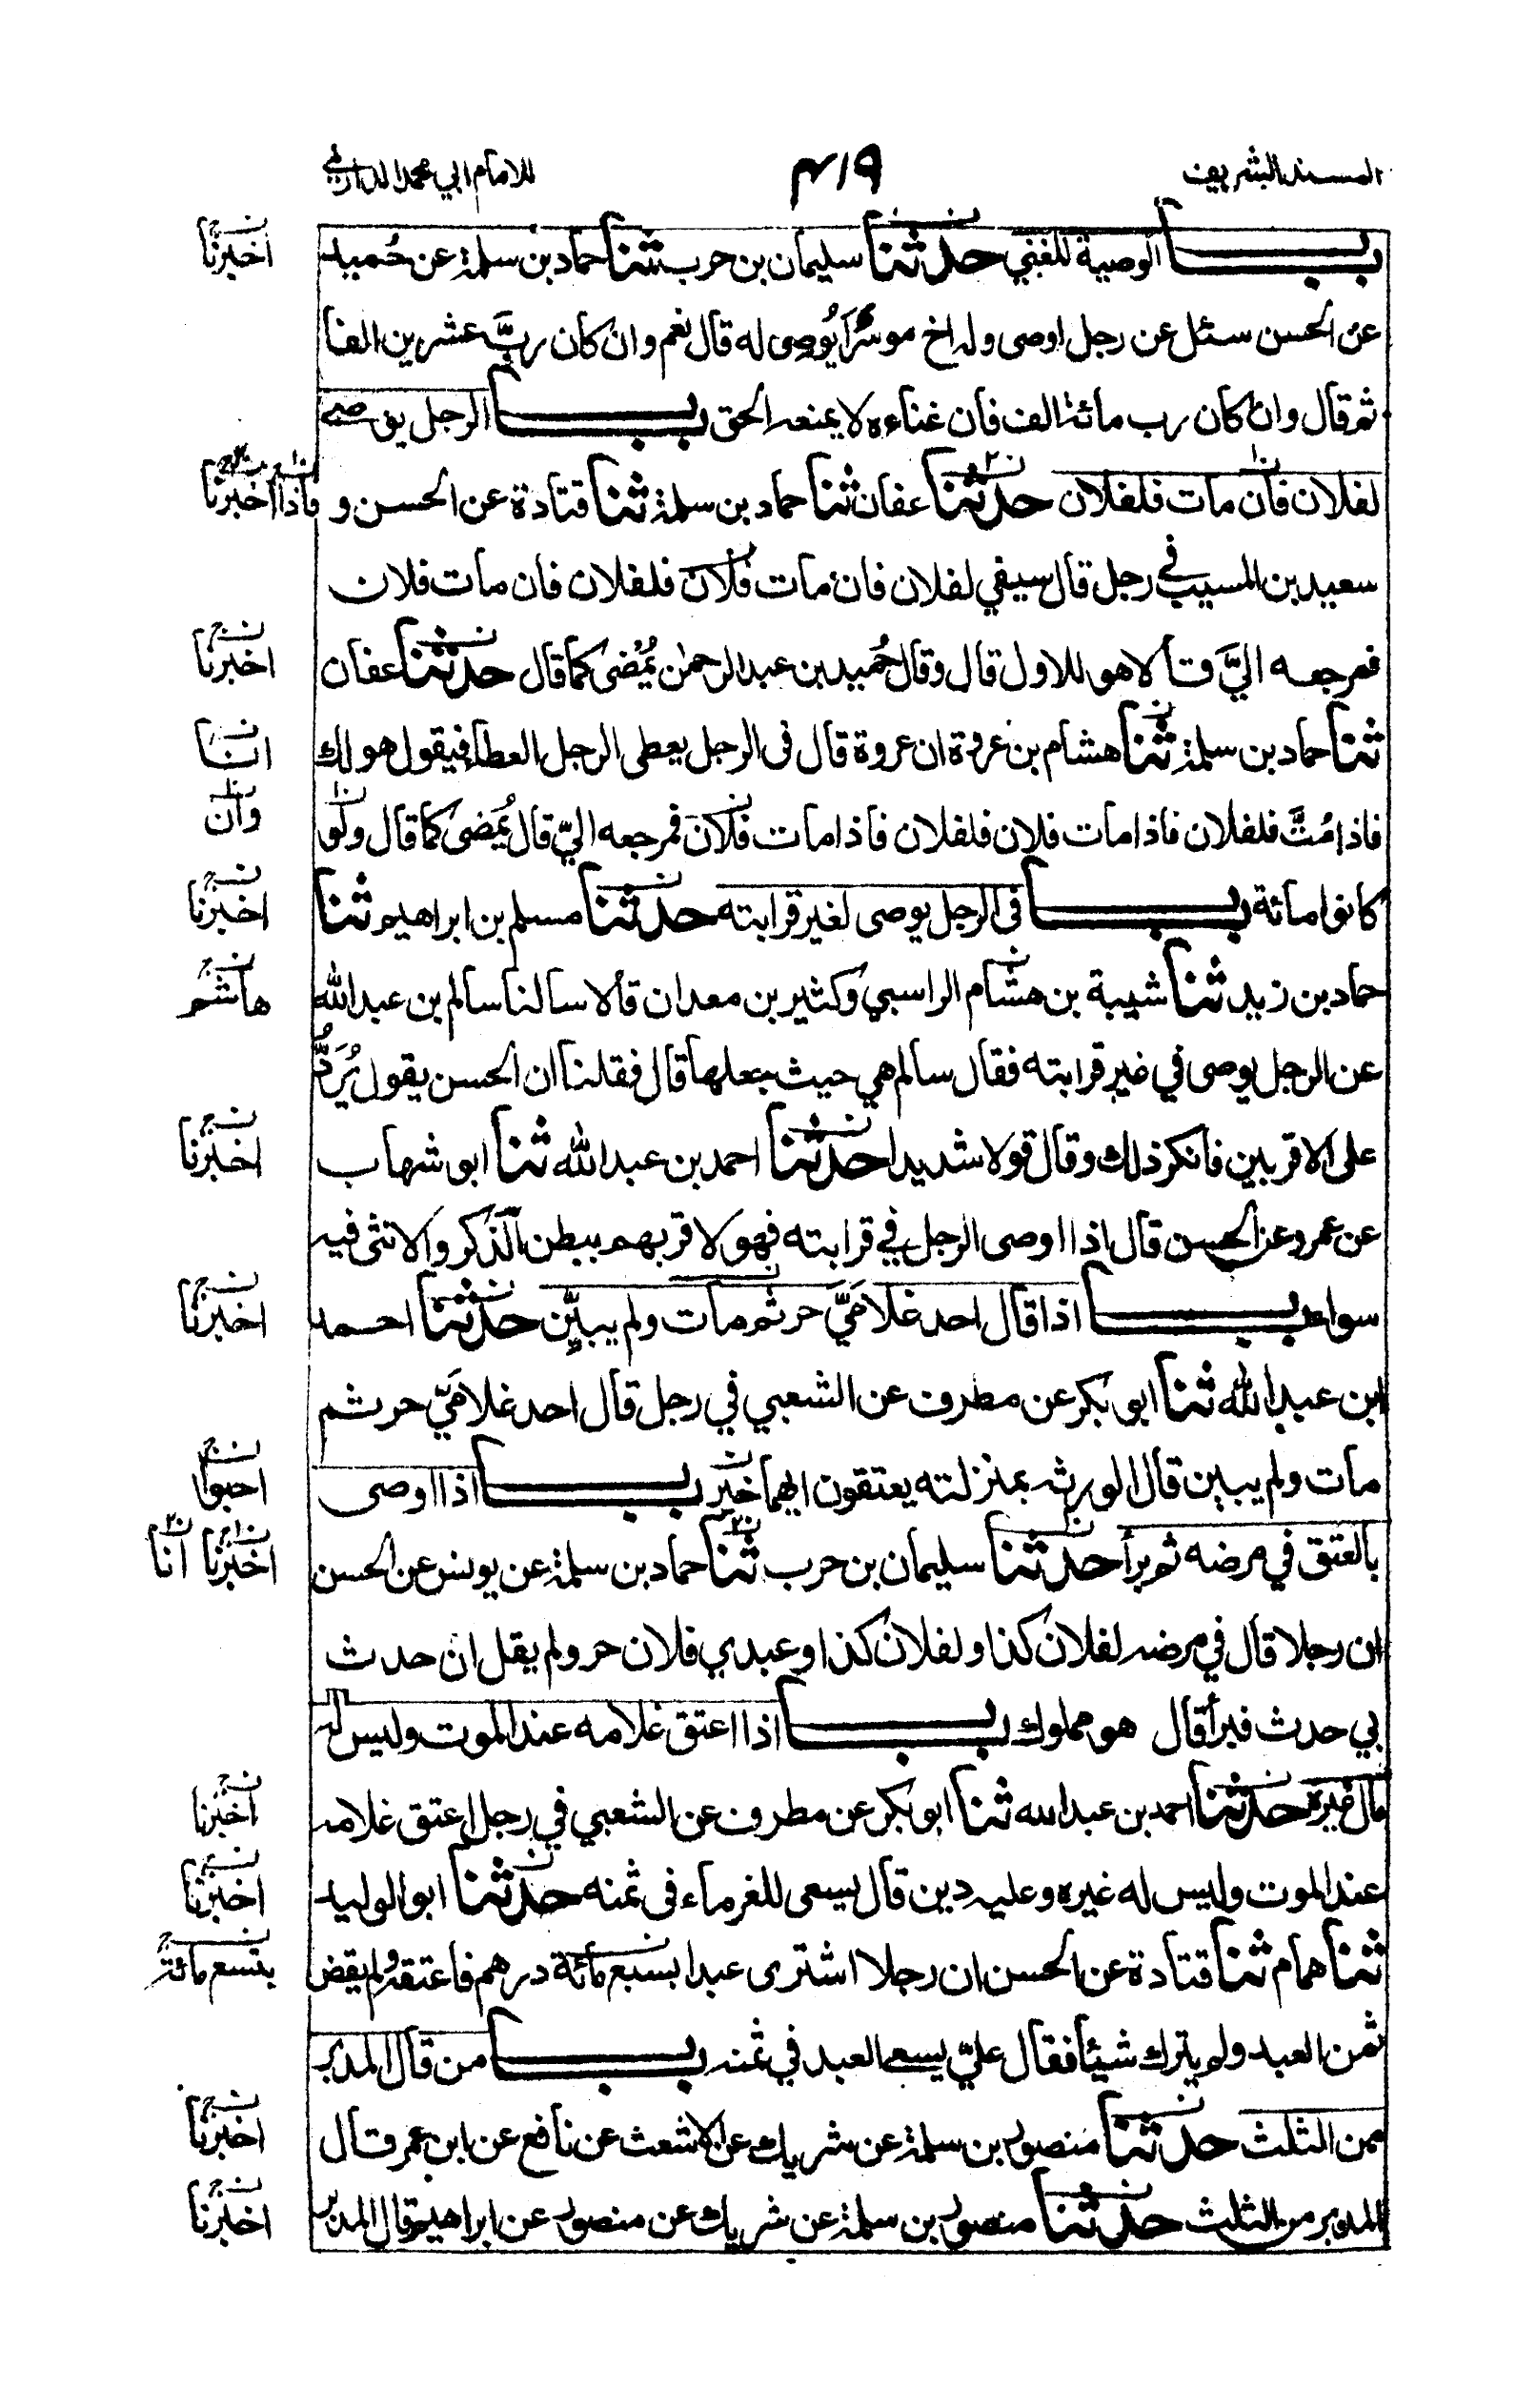 المسند الشريف ۴۱۹ للامام ابي محمد الدارمي
باب الوصية للغني حدثنا سليمان بن حرب ثنا حماد بن سلمة عن حُميد
اخبرنا
عن الحسن سئل عن رجل اوصى وله اخ موسرٌ أيُوصى له قال نعم وان كان ربَّ عشرين الفا
ثم قال وان كان رب مائة الف فان غناءه لا يمنعه الحق باب الرجل يوصى
لفلان فان مات فلفلان حدثنا عفان ثنا حماد بن سلمة ثنا قتادة عن الحسن و
فاذا اخبرنا
سعيد بن المسيب في رجل قال سيفي لفلان فان مات فلان فلفلان فان مات فلان
فمرجعه اليَّ قالا هو للاول قال وقال حُميد بن عبد الرحمن يُمْضىٰ كما قال حدثنا عفان
اخبرنا
ثنا حماد بن سلمة ثنا هشام بن عروة ان عروة قال فى الرجل يعطى الرجل العطاء فيقول هو لك
انبأنا
فاذا مُتُّ فلفلان فاذا مات فلان فلفلان فاذا مات فلان فمرجعه اليّ قال يُمضىٰ كما قال ولو
وان
كانوا مائة باب فى الرجل يوصى لغير قرابته حدثنا مسلم بن ابراهيم ثنا
اخبرنا
حماد بن زيد ثنا شيبة بن هشام الراسبي وكثير بن معدان قالا سالنا سالم بن عبد الله
هاشم
عن الرجل يوصى في غير قرابته فقال سالم هي حيث جعلها قال فقلنا ان الحسن يقول يُرَدُّ
على الاقربين فانكر ذلك وقال قولا شديدا حدثنا احمد بن عبد الله ثنا ابو شهاب
اخبرنا
عن عمرو عن الحسن قال اذا اوصى الرجل في قرابته فهو لاقربهم ببطن الذكر والانثى فيه
سواء باب اذا قال احد غلامَيَّ حر ثم مات ولم يبيّن حدثنا احمد
اخبرنا
ابن عبد الله ثنا ابو بكر عن مطرف عن الشعبي في رجل قال احد غلامَيّ حر ثم
مات ولم يبين قال الورثة بمنزلته يعتقون ايهما خير باب اذا اوصى
احبوا
بالعتق في مرضه ثم برأ حدثنا سليمان بن حرب ثنا حماد بن سلمة عن يونس عن الحسن
اخبرنا انا
ان رجلا قال في مرضه لفلان كذا ولفلان كذا وعبدي فلان حر ولم يقل ان حدث
بي حدث فبرأ قال هو مملوك باب اذا اعتق غلامه عند الموت وليس له
مال غيره حدثنا احمد بن عبد الله ثنا ابو بكر عن مطرف عن الشعبي في رجل اعتق غلامه
اخبرنا
عند الموت وليس له غيره وعليه دين قال يسعى للغرماء فى ثمنه حدثنا ابو الوليد
اخبرنا
ثنا همام ثنا قتادة عن الحسن ان رجلا اشترى عبدا بسبع مائة درهم فاعتقه ولم يقض
بتسع مائة
ثمن العبد ولم يترك شيئا فقال عليّ يسعى العبد في ثمنه باب من قال المدبر
من الثلث حدثنا منصور بن سلمة عن شريك عن الاشعث عن نافع عن ابن عمر قال
اخبرنا
المدبر من الثلث حدثنا منصور بن سلمة عن شريك عن منصور عن ابراهيم قال المدبر
اخبرنا